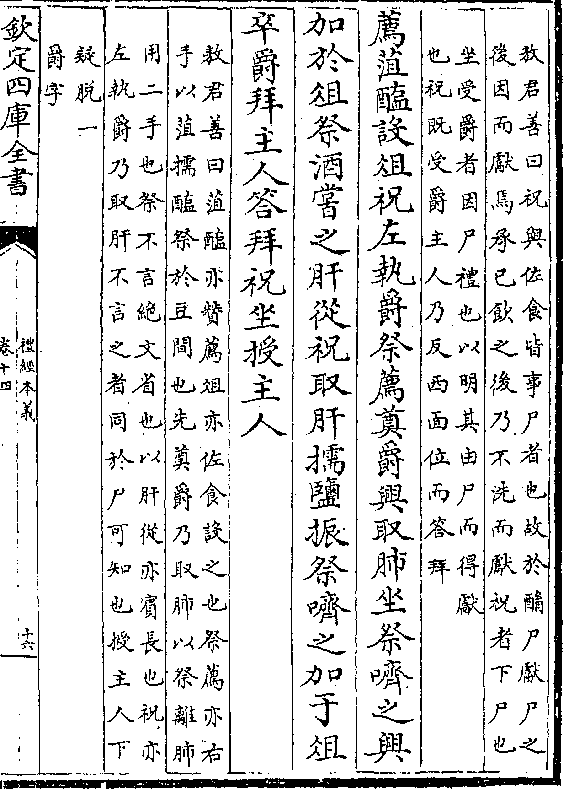 敖君善曰祝與佐食皆事尸者也故於酳尸獻尸之
後因而獻焉承已飲之後乃不洗而獻祝者下尸也
坐受爵者因尸禮也以明其由尸而得獻
也祝既受爵主人乃反西面位而答拜
薦菹醢設俎祝左執爵祭薦奠爵興取肺坐祭嚌之興
加於俎祭酒嘗之肝從祝取肝擩鹽振祭嚌之加于俎
卒爵拜主人答拜祝坐授主人
敖君善曰菹醢亦贊薦俎亦佐食設之也祭薦亦右
手以菹擩醢祭於豆間也先奠爵乃取肺以祭離肺
用二手也祭不言絕文省也以肝從亦賓長也祝亦
左執爵乃取肝不言之者同於尸可知也授主人下
疑脫一
爵字
欽定四庫全書
禮經本義
卷十四
十六